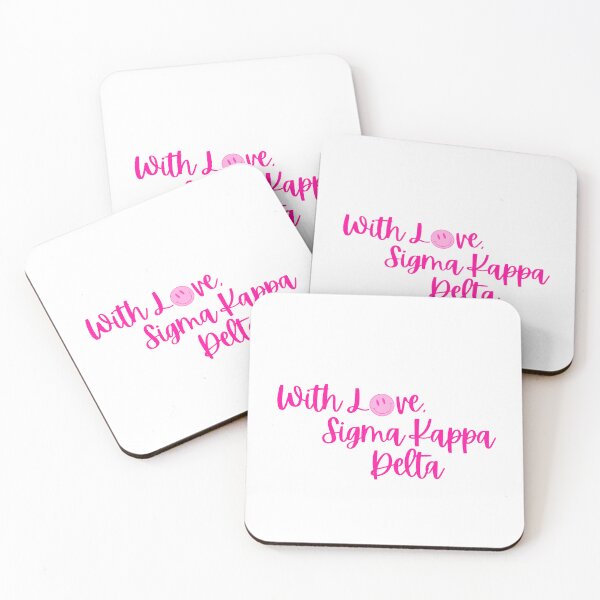 With Love,
Kapp
elta
With Love,
Sigma Kappa
Delta
With Love,
Sigma Kappa
Delt
With Love,
Sigma Kappa
Delta